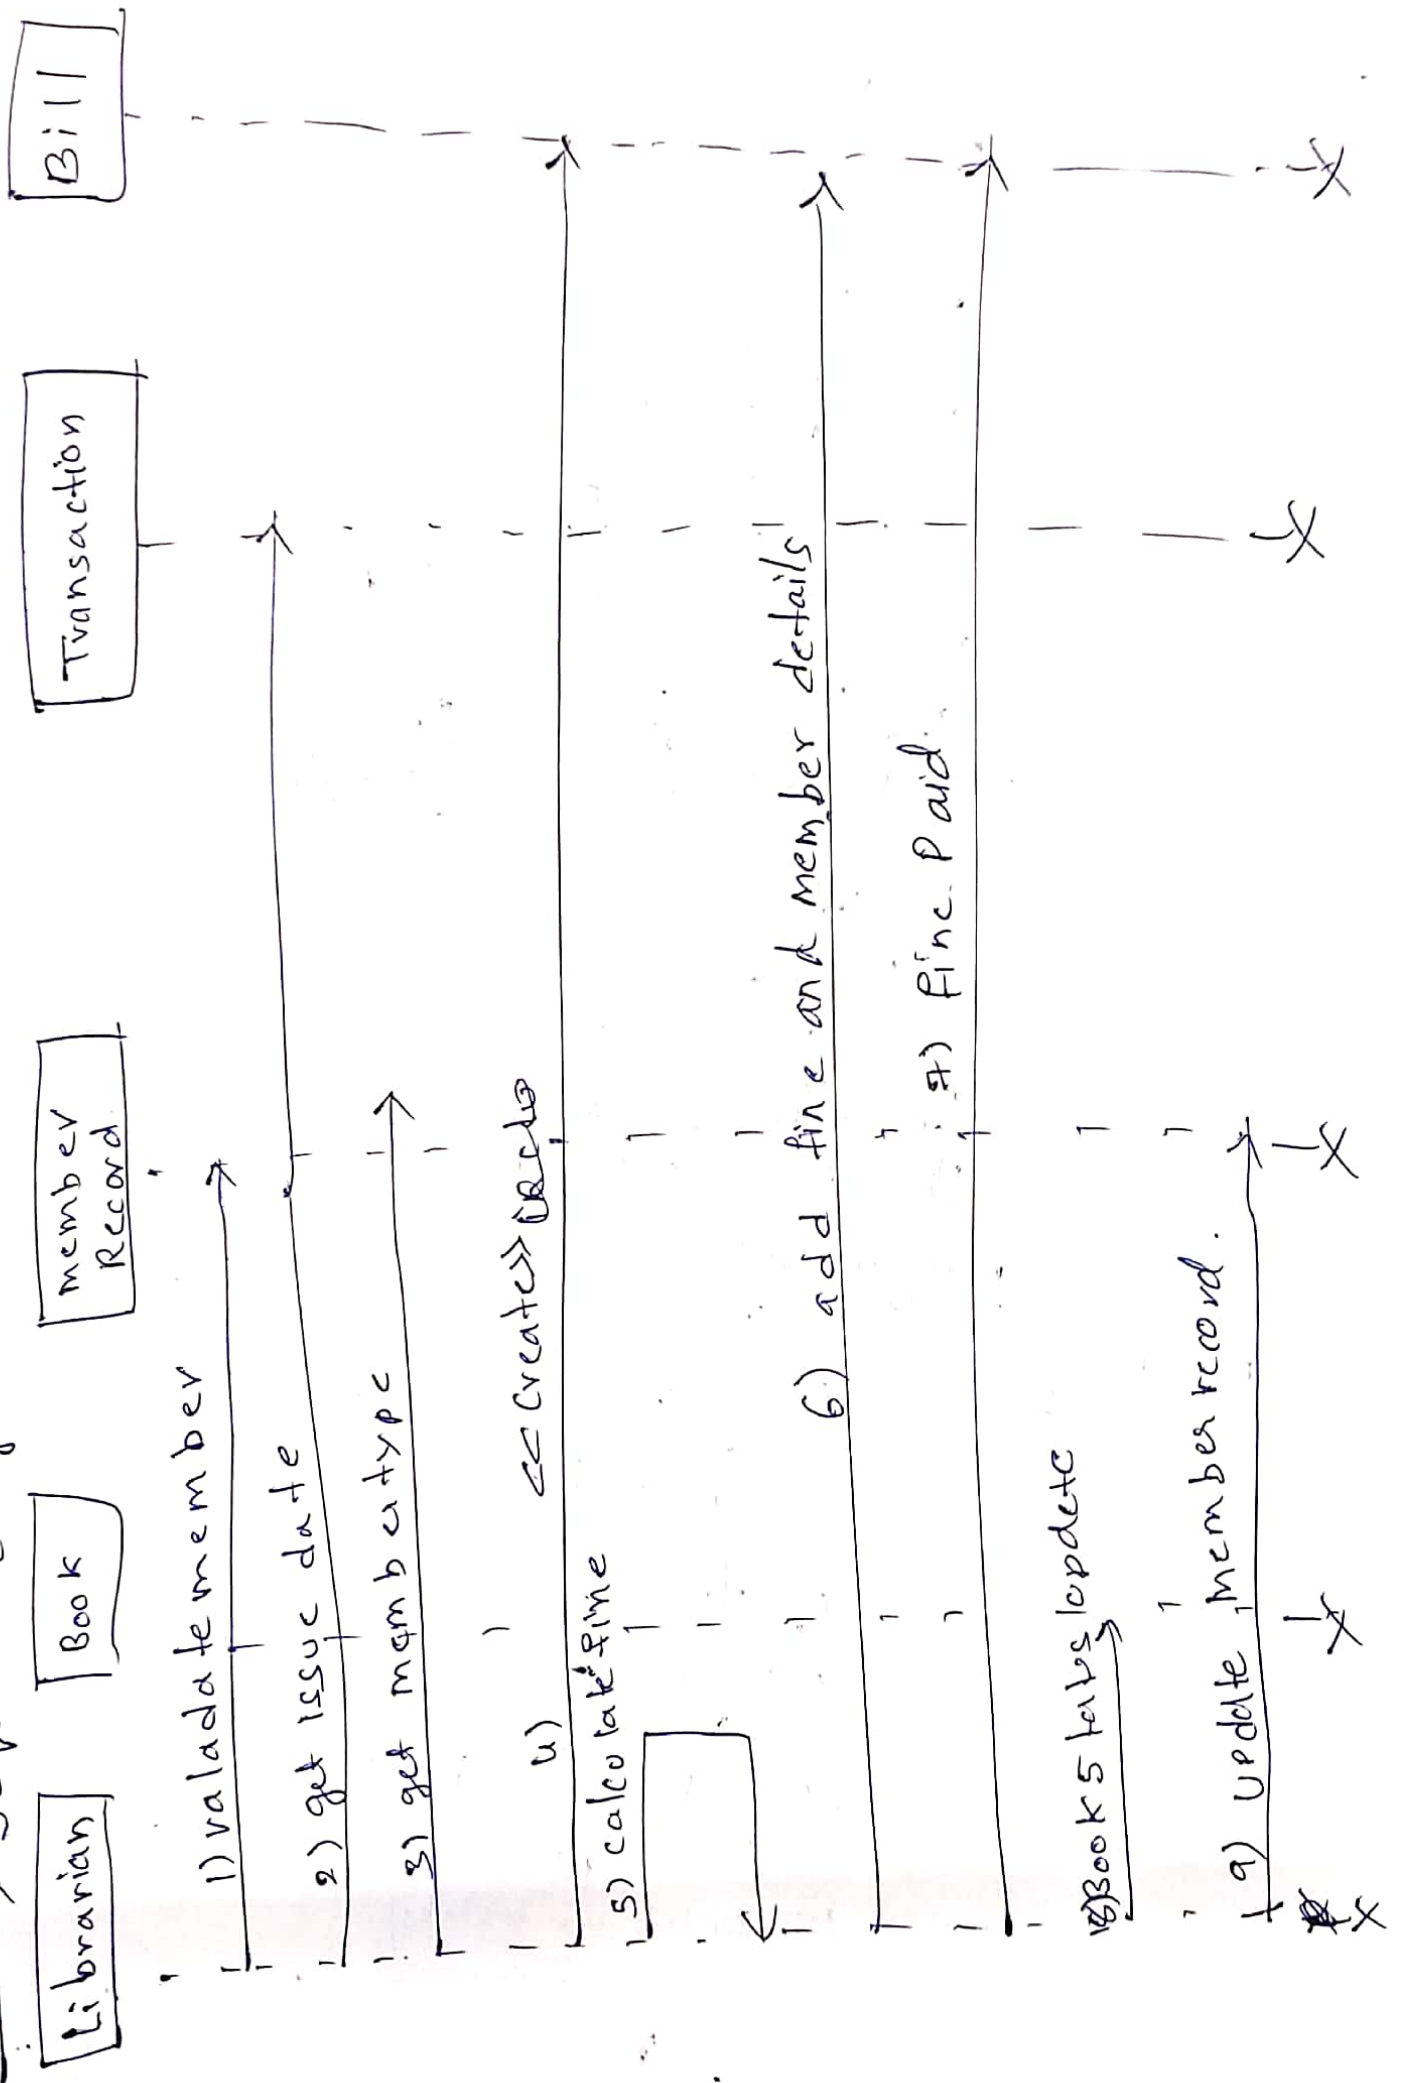 Librarian
Book
member
Record
Transaction
Bill
1) valadatemember
2) get issue date
3) get member type
4) <<Create>>
5) calculate fine
6) add fine and member details
7) fine Paid.
8) Book
9) update member record.